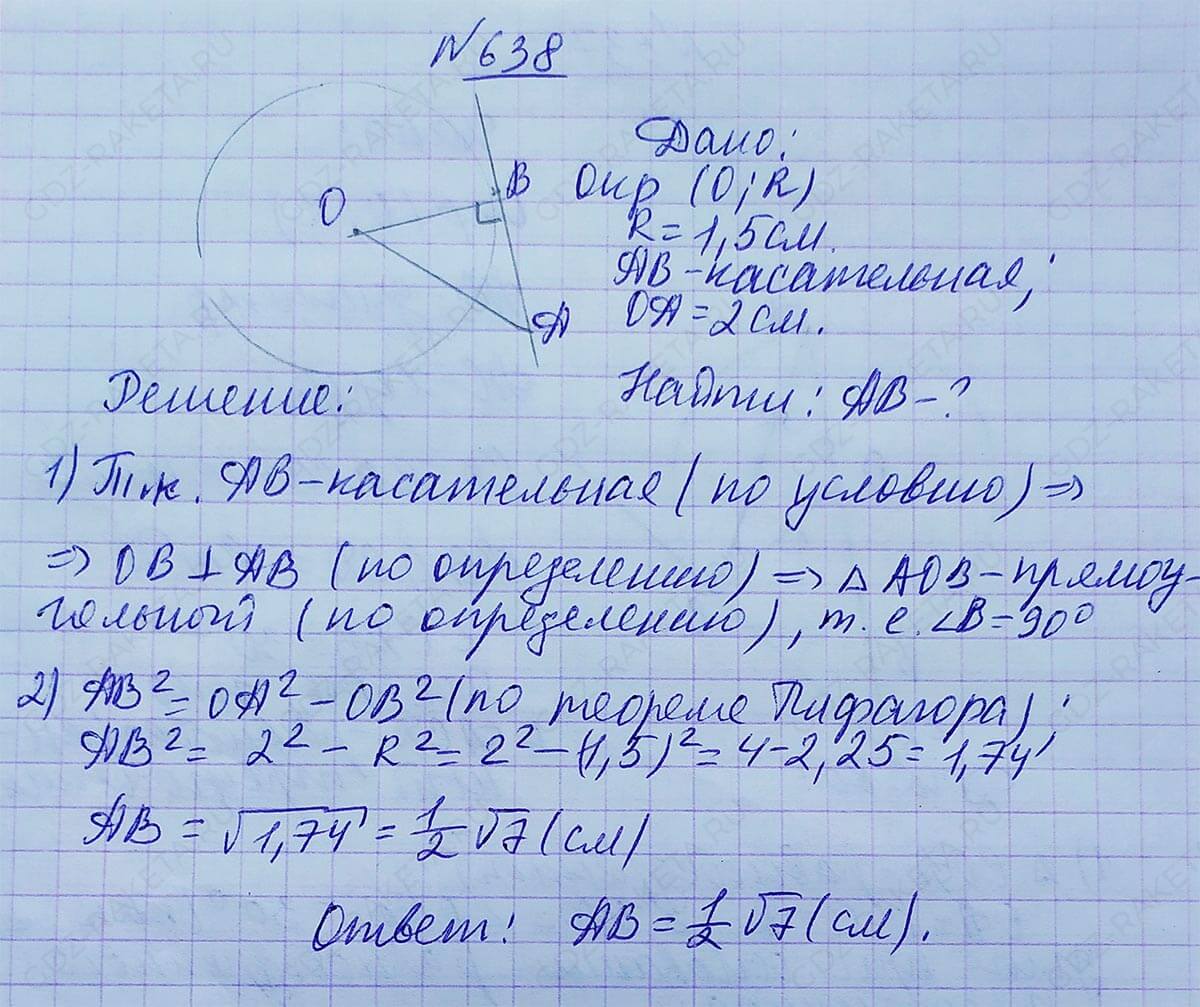 №638
O
B
A
Дано:
Окр (O; R)
R = 1,5 см.
AB - касательная;
OA = 2 см.
Найти: AB - ?
Решение:
1) Т.к. AB - касательная (по условию) =>
=> OB ⊥ AB (по определению) => △ AOB - прямоу-
гольный (по определению), т. е. ∠B = 90°
2) AB² = OA² - OB² (по теореме Пифагора);
AB² = 2² - R² = 2² - (1,5)² = 4 - 2,25 = 1,74
AB = √1,74 = 1/2 √7 (см)
Ответ: AB = 1/2 √7 (см).
GDZ-RAKETA.RU